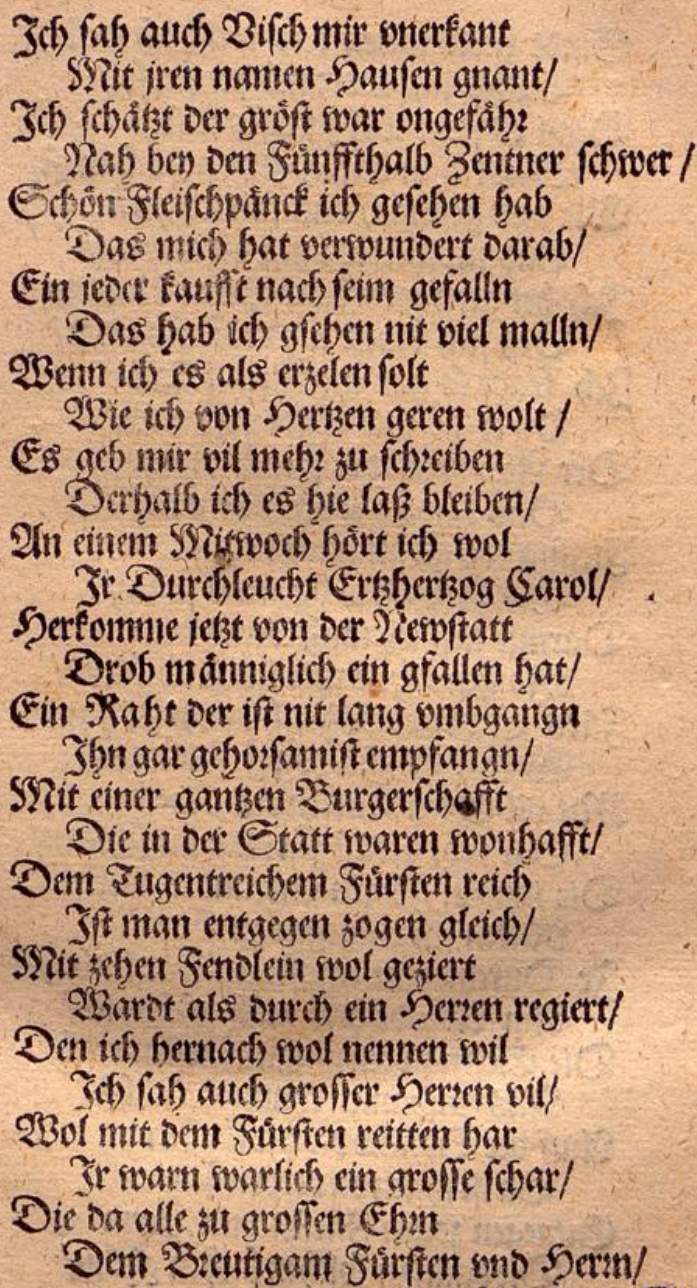 Ich sah auch Visch mir vnerkant
Mit jren namen Hausen gnant/
Ich schätzt der gröst war ongefähr
Nah bey den Fünffthalb Zentner schwer/
Schön Fleischpänck ich gesehen hab
Das mich hat verwundert darab/
Ein jeder kaufft nach seim gefalln
Das hab ich gsehen nit viel malln/
Wenn ich es als erzelen solt
Wie ich von Hertzen geren wolt/
Es geb mir vil mehr zu schreiben
Derhalb ich es hie laß bleiben/
An einem Mitwoch hört ich wol
Ir Durchleucht Ertzhertzog Carol/
Herkomme jetzt von der Newstatt
Drob männiglich ein gfallen hat/
Ein Raht der ist nit lang vmbgangn
Ihn gar gehorsamist empfangn/
Mit einer gantzen Burgerschafft
Die in der Statt waren wonhafft/
Dem Tugentreichem Fürsten reich
Ist man entgegen zogen gleich/
Mit zehen Fendlein wol geziert
Wardt als durch ein Herren regiert/
Den ich hernach wol nennen wil
Ich sah auch grosser Herren vil/
Wol mit dem Fürsten reitten har
Ir warn warlich ein grosse schar/
Die da alle zu grossen Ehrn
Dem Breutigam Fürsten vnd Herrn/